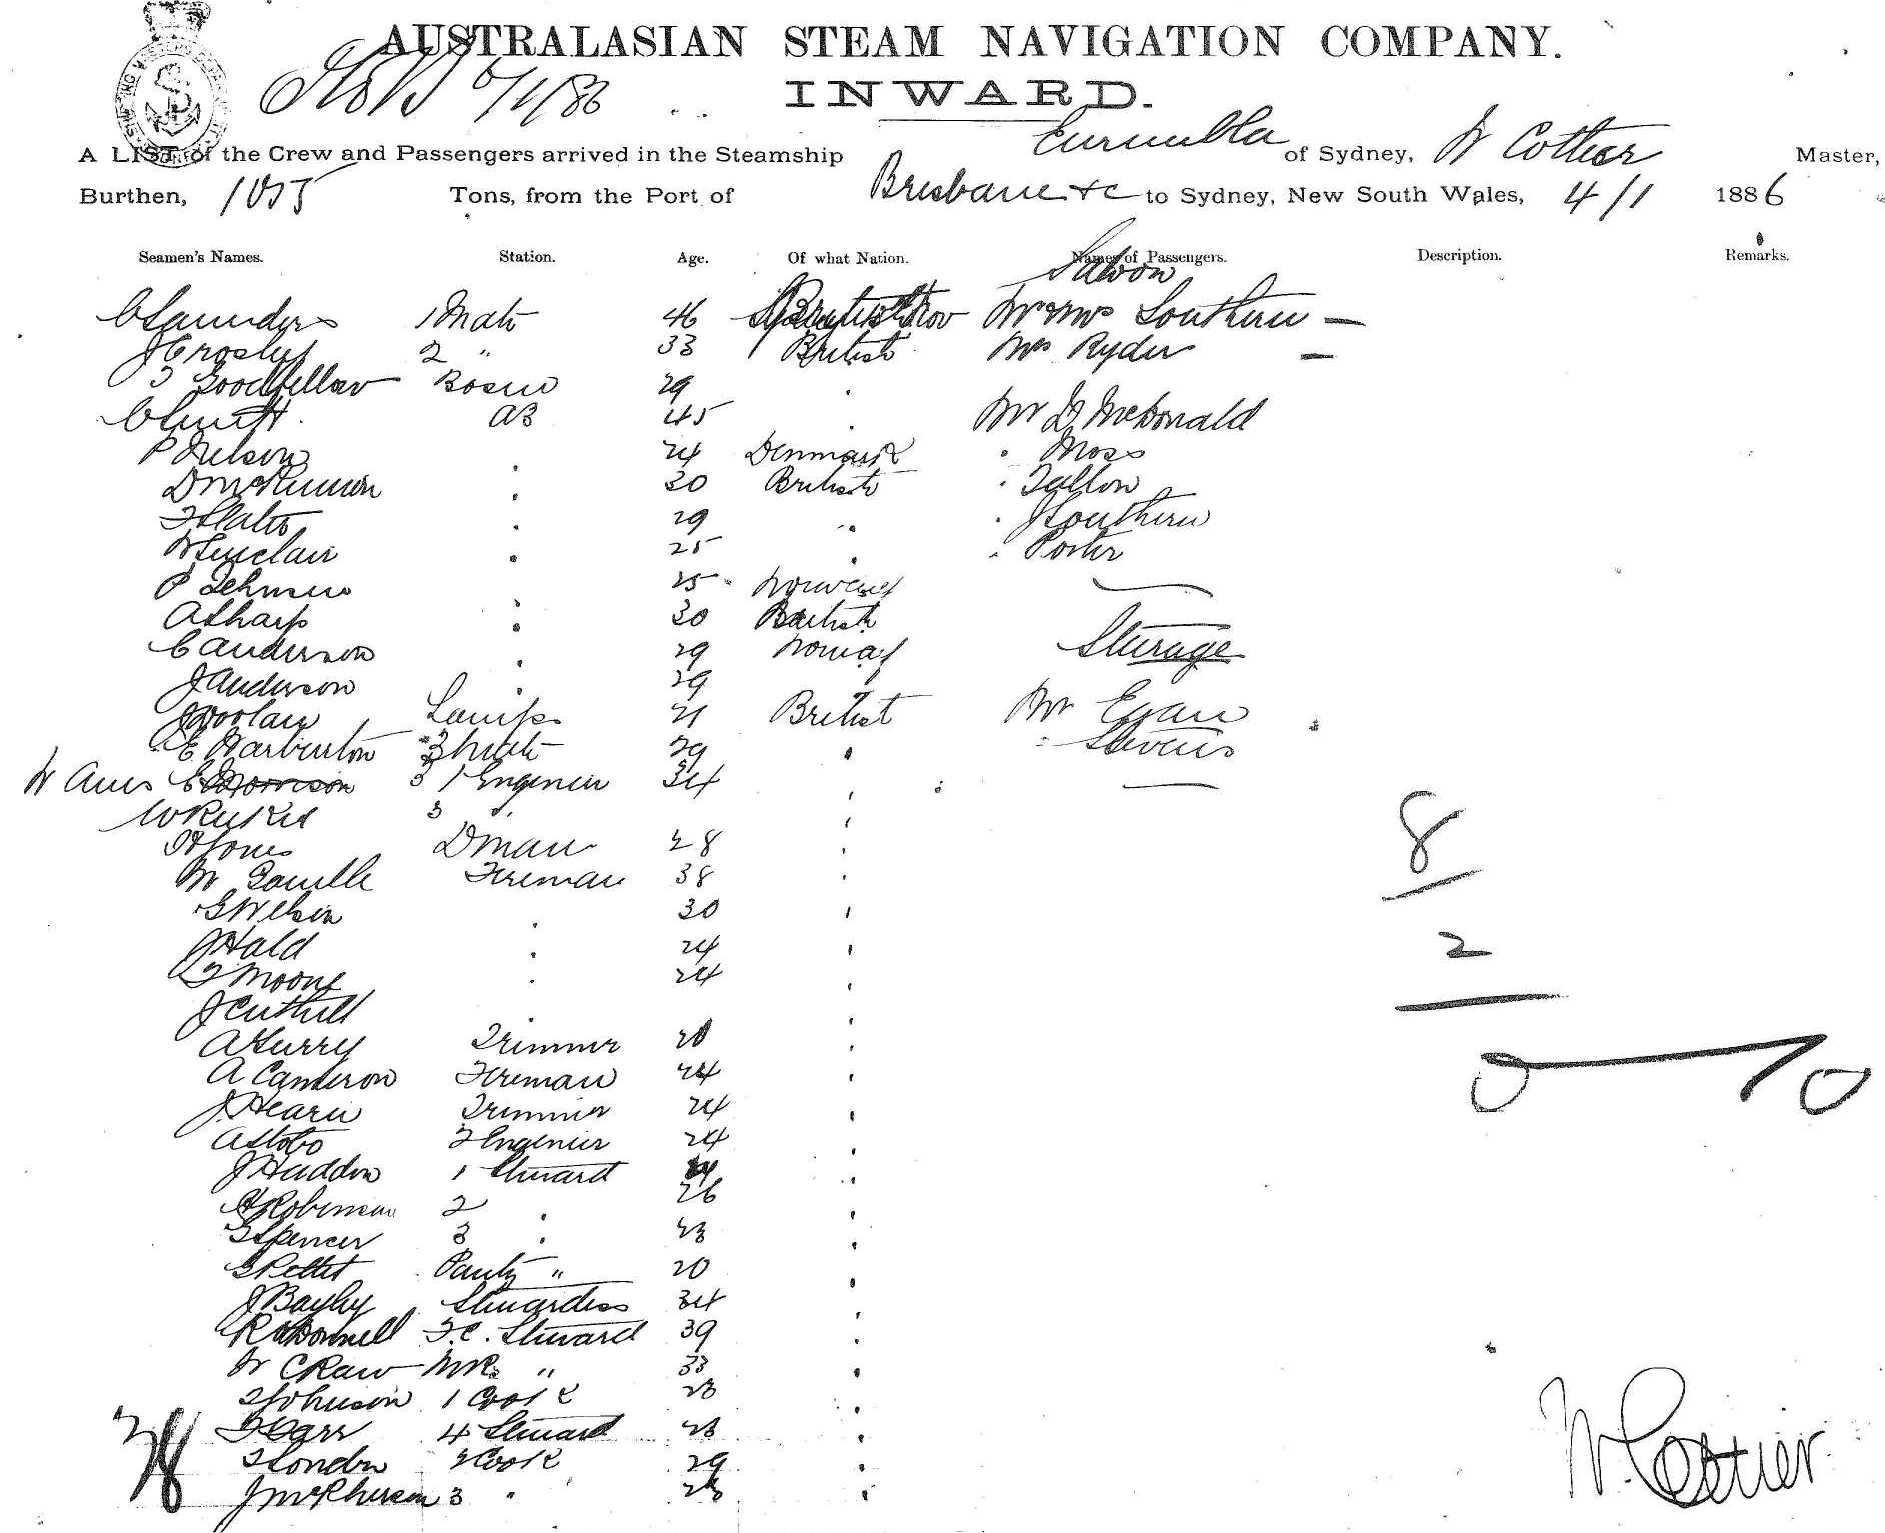 AUSTRALASIAN STEAM NAVIGATION COMPANY.
6/1/86
INWARD.
A LIST of the Crew and Passengers arrived in the Steamship Eurimbla of Sydney, W Cottier Master,
Burthen, 1055 Tons, from the Port of Brisbane &c to Sydney, New South Wales, 4/1 1886
Seamen's Names. Station. Age. Of what Nation. Names of Passengers. Description. Remarks.
Saloon
C Saunders 1 Mate 46 Mr & Mrs Southern —
J Crosby 2 " 33 British Mrs Ryder —
T Goodfellow Bosun 29
C Smith AB 45 Mr D McDonald
P Nelson 24 Denmark Moss
D McKinnon 30 British Tallon
T Slater 29 " J Southern
W Sinclair 25 Porter
P Jehnsen 25
A Sharp 30 British
C Anderson 29 Steerage
J Anderson 29
J Woolan Lamps 21 British Mr Evan
E Warburton 2 Mate 29 Stevens
W Ames E Morrison 1 Engineer 34
3
H Jones Dman 28
M Fireman 38
G Wilson 30
J Hald 24
T Moone 24
J Cuthill
A Gurry Trimmer 20
A Cameron Fireman 24
J Hearn Trimmer 24
A Stobo 2 Engineer 24
J Haddon 1 Steward
Robinson 2 26
G Spencer 3 23
G Pettit Pantry " 20
J Bayley Stewardess 34
R O'Donnell F.C. Steward 39
W C Raw MR " 33
T Johnson 1 Cook 23
T Carr 4 Steward 23
T London 2 Cook 29
J McPherson 3 " 23
38
8
2
10
W. Cottier